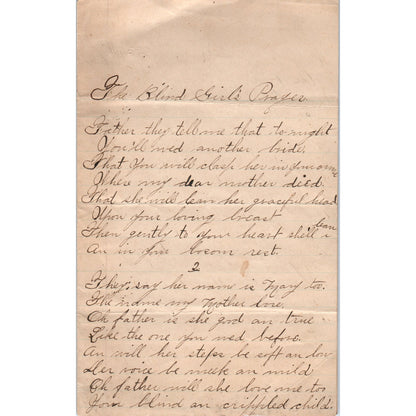 The Blind Girl's Prayer
Father they tell me that to-night
You'll wed another bride.
That You will clasp her in your arms
Where my dear mother died.
That she will lean her graceful head
Upon Your loving breast
Then gently to Your heart she'll lean
An in your bosom rest.
2
They, say her name is Mary too.
The name my Mother bore.
Oh father is she god an true
Like the one you wed before.
An will her steps be soft an low
Her voice be meek an mild
Oh father will she love me too
Your blind an crippled child.